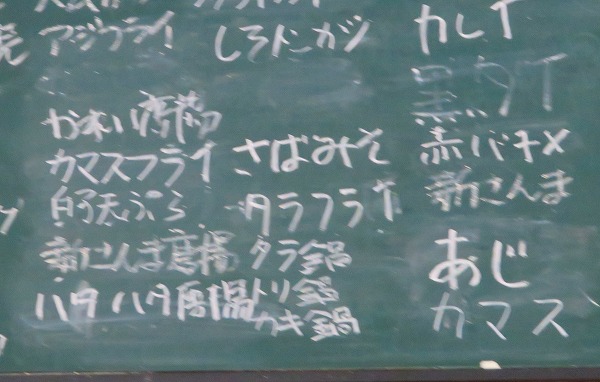 アジフライ
かれい唐揚
カマスフライ
白子天ぷら
新さんま唐揚
ハタハタ唐揚
しろトンカツ
さばみそ
タラフライ
タラ鍋
トリ鍋
カキ鍋
カレイ
黒ダイ
赤バチメ
新さんま
あじ
カマス